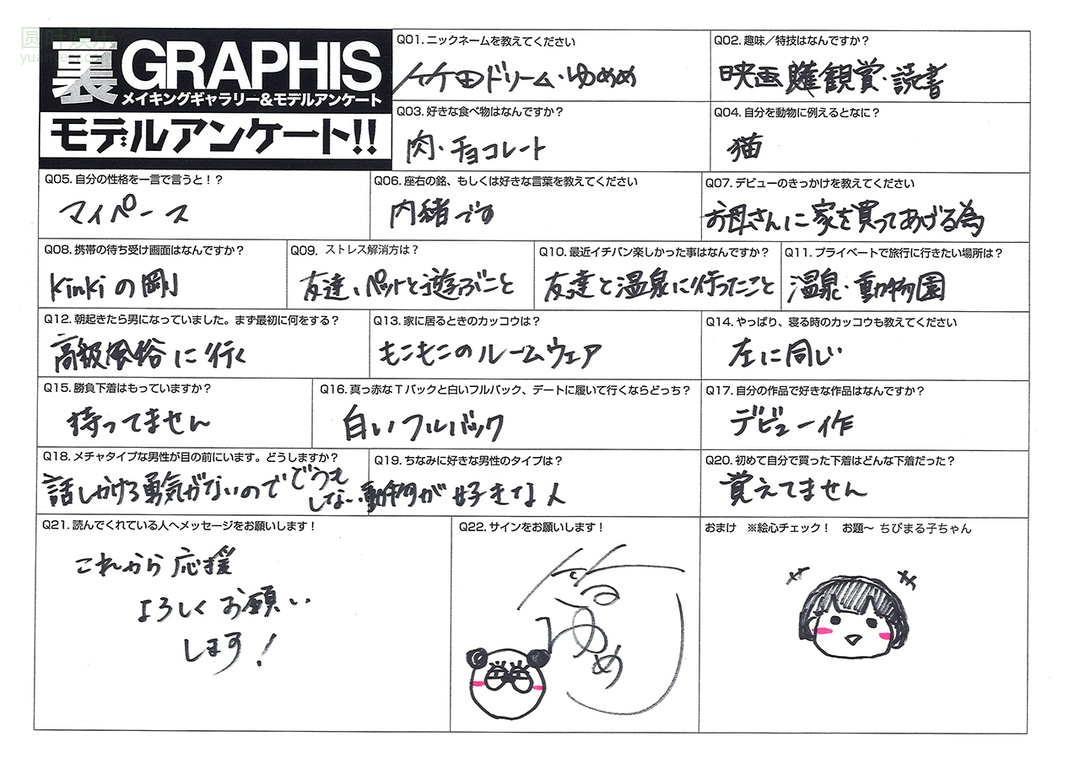 圆叶娱乐
裏GRAPHIS
メイキングギャラリー&モデルアンケート
モデルアンケート!!
Q01. ニックネームを教えてください
竹田ドリーム・ゆめめ
Q02. 趣味／特技はなんですか？
映画鑑賞・読書
Q03. 好きな食べ物はなんですか？
肉・チョコレート
Q04. 自分を動物に例えるとなに？
猫
Q05. 自分の性格を一言で言うと！？
マイペース
Q06. 座右の銘、もしくは好きな言葉を教えてください
内緒です
Q07. デビューのきっかけを教えてください
お母さんに家を買ってあげる為
Q08. 携帯の待ち受け画面はなんですか？
Kinkiの剛
Q09. ストレス解消方は？
友達、ペットと遊ぶこと
Q10. 最近イチバン楽しかった事はなんですか？
友達と温泉に行ったこと
Q11. プライベートで旅行に行きたい場所は？
温泉・動物園
Q12. 朝起きたら男になっていました。まず最初に何をする？
高級風俗に行く
Q13. 家に居るときのカッコウは？
もこもこのルームウェア
Q14. やっぱり、寝る時のカッコウも教えてください
左に同じ
Q15. 勝負下着はもっていますか？
持ってません
Q16. 真っ赤なTバックと白いフルバック、デートに履いて行くならどっち？
白いフルバック
Q17. 自分の作品で好きな作品はなんですか？
デビュー作
Q18. メチャタイプな男性が目の前にいます。どうしますか？
話しかける勇気がないのでどうも
しない
Q19. ちなみに好きな男性のタイプは？
動物が好きな人
Q20. 初めて自分で買った下着はどんな下着だった？
覚えてません
Q21. 読んでくれている人へメッセージをお願いします！
これから応援
よろしくお願い
します！
Q22. サインをお願いします！
ゆめ
おまけ ※絵心チェック！ お題～ ちびまる子ちゃん